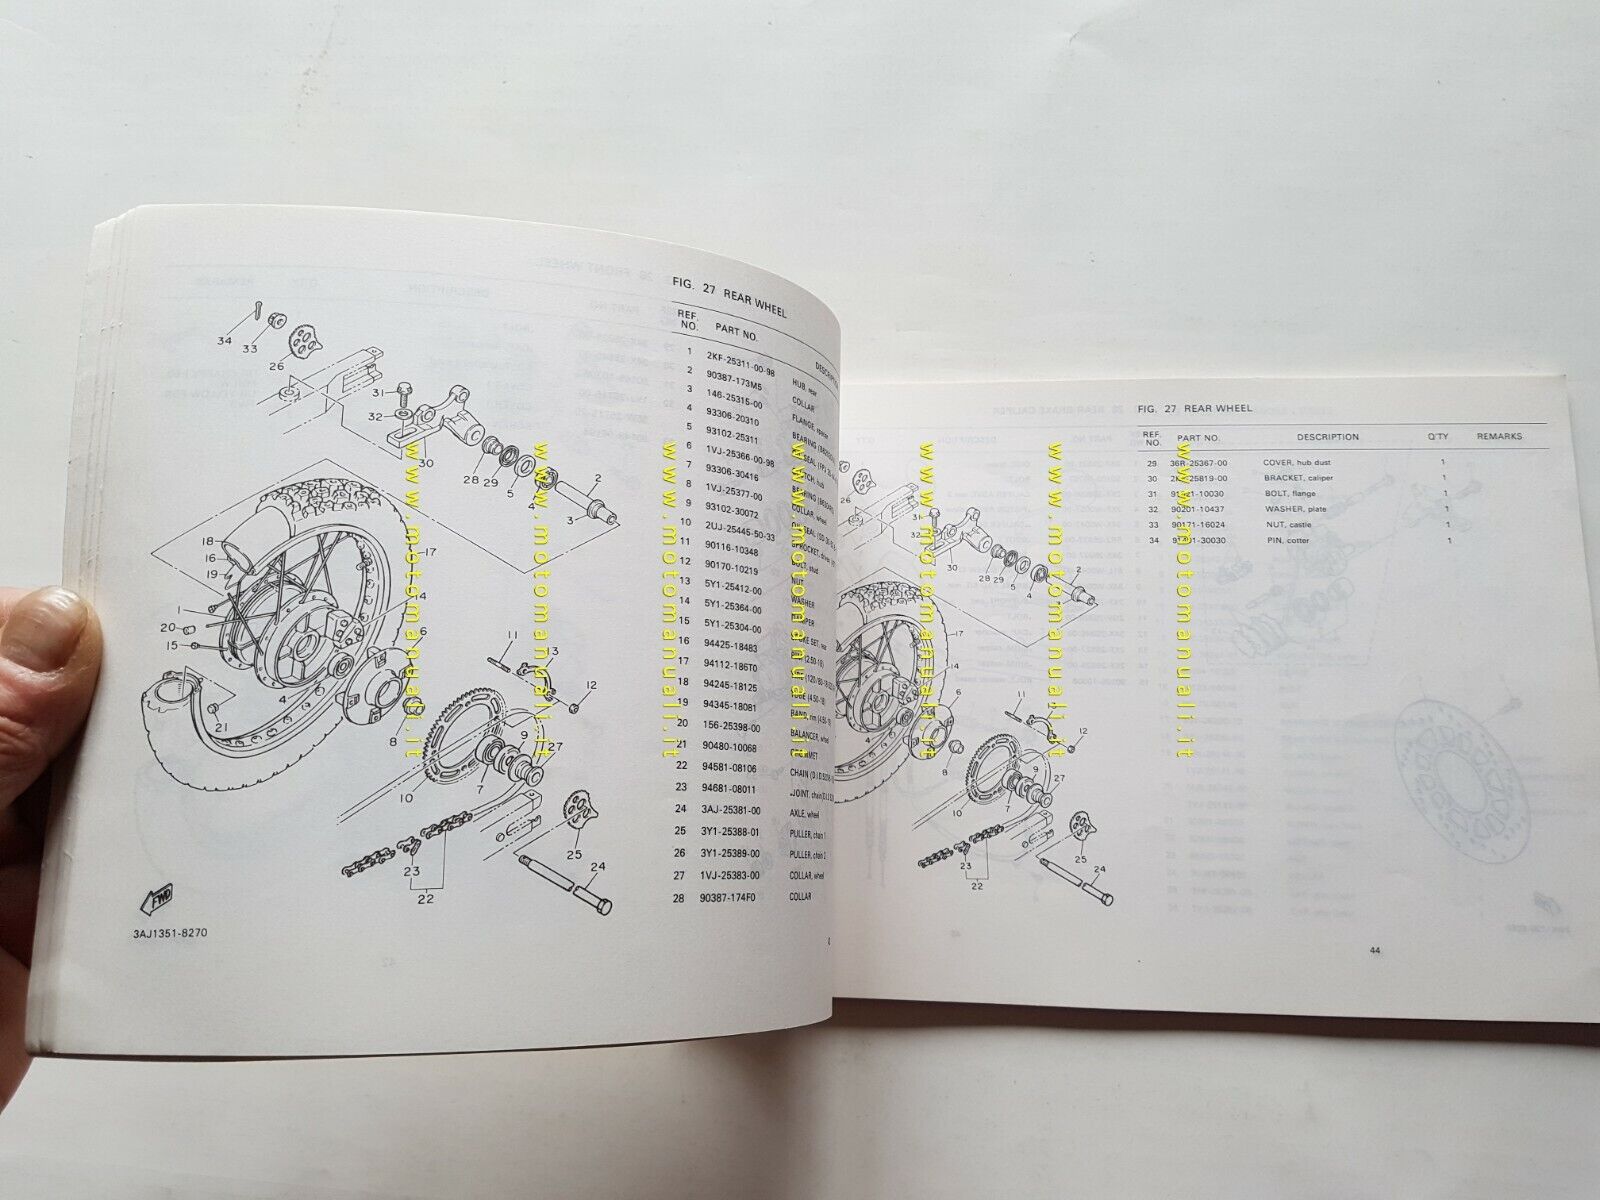 FIG. 27 REAR WHEEL
REF. NO. PART NO.
1 2KF-25311-00-98 HUB, rear
2 90387-173M5 COLLAR
3 146-25315-00 FLANGE, spacer
4 93306-20310 BEARING
5 93102-25311 SEAL
6 1VJ-25366-00-98 hub
7 93306-30416 BEARING
8 1VJ-25377-00 COLLAR, wheel
9 93102-30072 SEAL
10 2UJ-25445-50-33 SPROCKET, driven
11 90116-10348 BOLT, stud
12 90170-10219 NUT
13 5Y1-25412-00 WASHER
14 5Y1-25364-00
15 5Y1-25304-00 SET, rear
16 94425-18483 (2.50-18)
17 94112-186T0
18 94245-18125 (4.50-18)
19 94345-18081 BAND, rim (4.50-18)
20 156-25398-00 BALANCER, wheel
21 90480-10068
22 94581-08106 CHAIN
23 94681-08011 JOINT, chain
24 3AJ-25381-00 AXLE, wheel
25 3Y1-25388-01 PULLER, chain 1
26 3Y1-25389-00 PULLER, chain 2
27 1VJ-25383-00 COLLAR, wheel
28 90387-174F0 COLLAR
FWD
3AJ1351-8270
www.motomanuali.it
www.motomanuali.it
www.motomanuali.it
www.motomanuali.it
FIG. 27 REAR WHEEL
REF. NO. PART NO. DESCRIPTION Q'TY REMARKS
29 36R-25367-00 COVER, hub dust 1
30 25819-00 BRACKET, caliper 1
31 10030 BOLT, flange 1
32 90201-10437 WASHER, plate 1
33 90171-16024 NUT, castle 1
34 30030 PIN, cotter 1
www.motomanuali.it
www.motomanuali.it
www.motomanuali.it
44